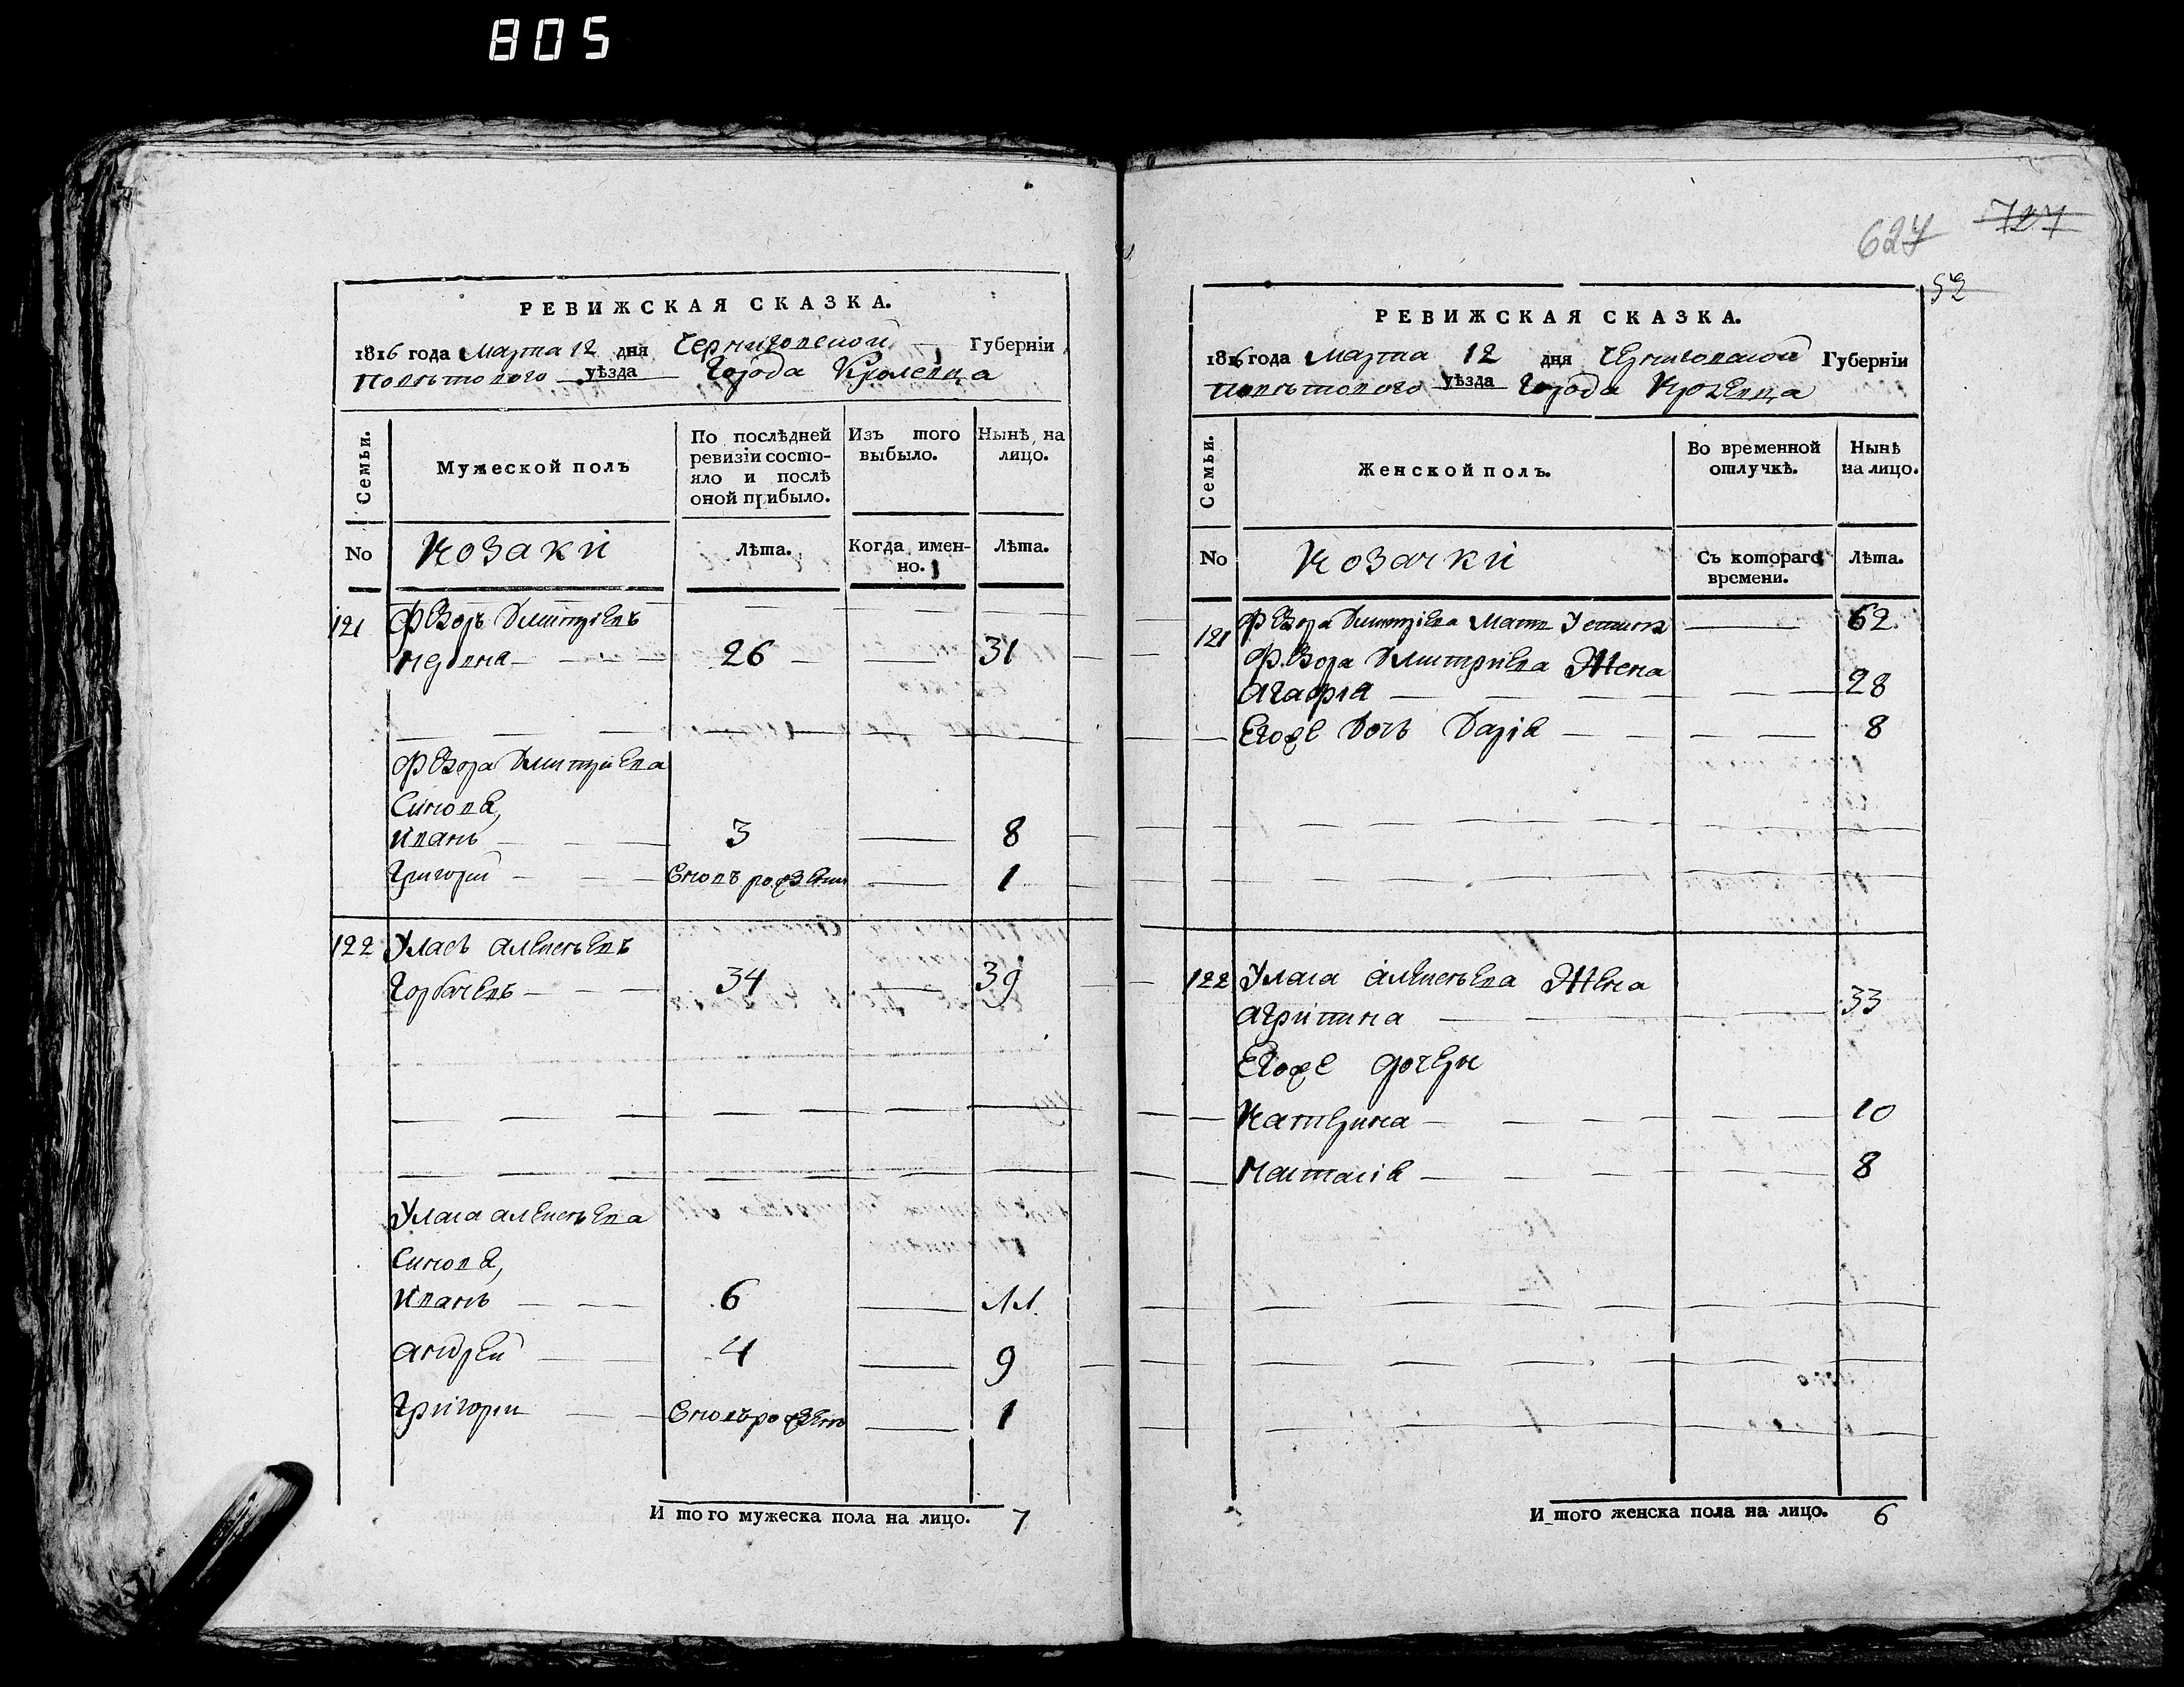 805
РЕВИЖСКАЯ СКАЗКА.
1816 года Марта 12 дня Черниговской Губерніи
Поветового уѣзда Города Кролевца
Семьи.
Мужеской полъ
По послѣдней ревизіи состо-
яло и послѣ
оной прибыло.
Изъ того
выбыло.
Нынѣ на
лицо.
No
Козаки
Лѣта.
Когда имен-
но.
Лѣта.
121 Федоръ Дмитріевъ
26 31
Федора Дмитриева
Синове,
Иванъ 3 8
Григорий Вновъ рожденъ 1
122 Уласъ Алексѣевъ
Горбачевъ 34 39
Уласа Алексѣева
Синове,
Иванъ 6 11
Андрей 4 9
Григорий Вновърожденъ 1
И того мужеска пола на лицо. 7
627 727
52
РЕВИЖСКАЯ СКАЗКА.
1816 года Марта 12 дня Черниговской Губерніи
Поветового уѣзда Города Кролевца
Семьи.
Женской полъ.
Во временной
отлучкѣ.
Нынѣ
на лицо.
No
Козачки
Съ котораго
времени.
Лѣта.
121 Федора Дмитріева Мати 62
Федора Дмитриева Жена
Агафія 28
Егоже Дочь Даріа 8
122 Уласа Алексѣева Жена
Агрипина 33
Егоже дочери
Катерина 10
Настасіа 8
И того женска пола на лицо. 6